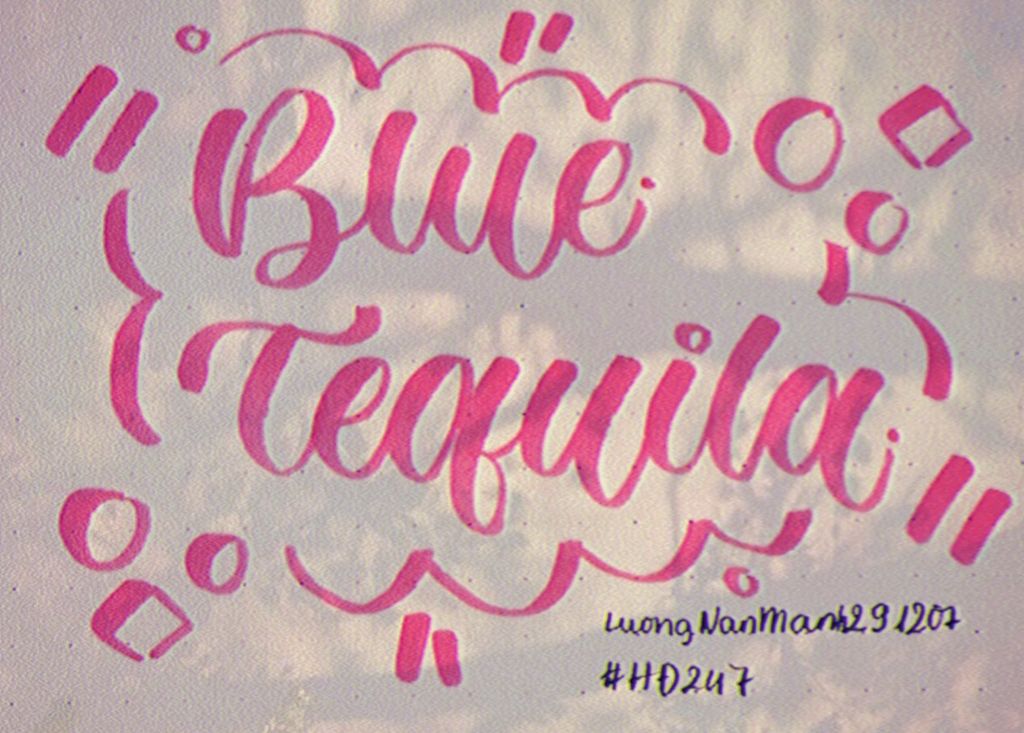 Blue
Tequila
LuongNanManh291207.
#HĐ247